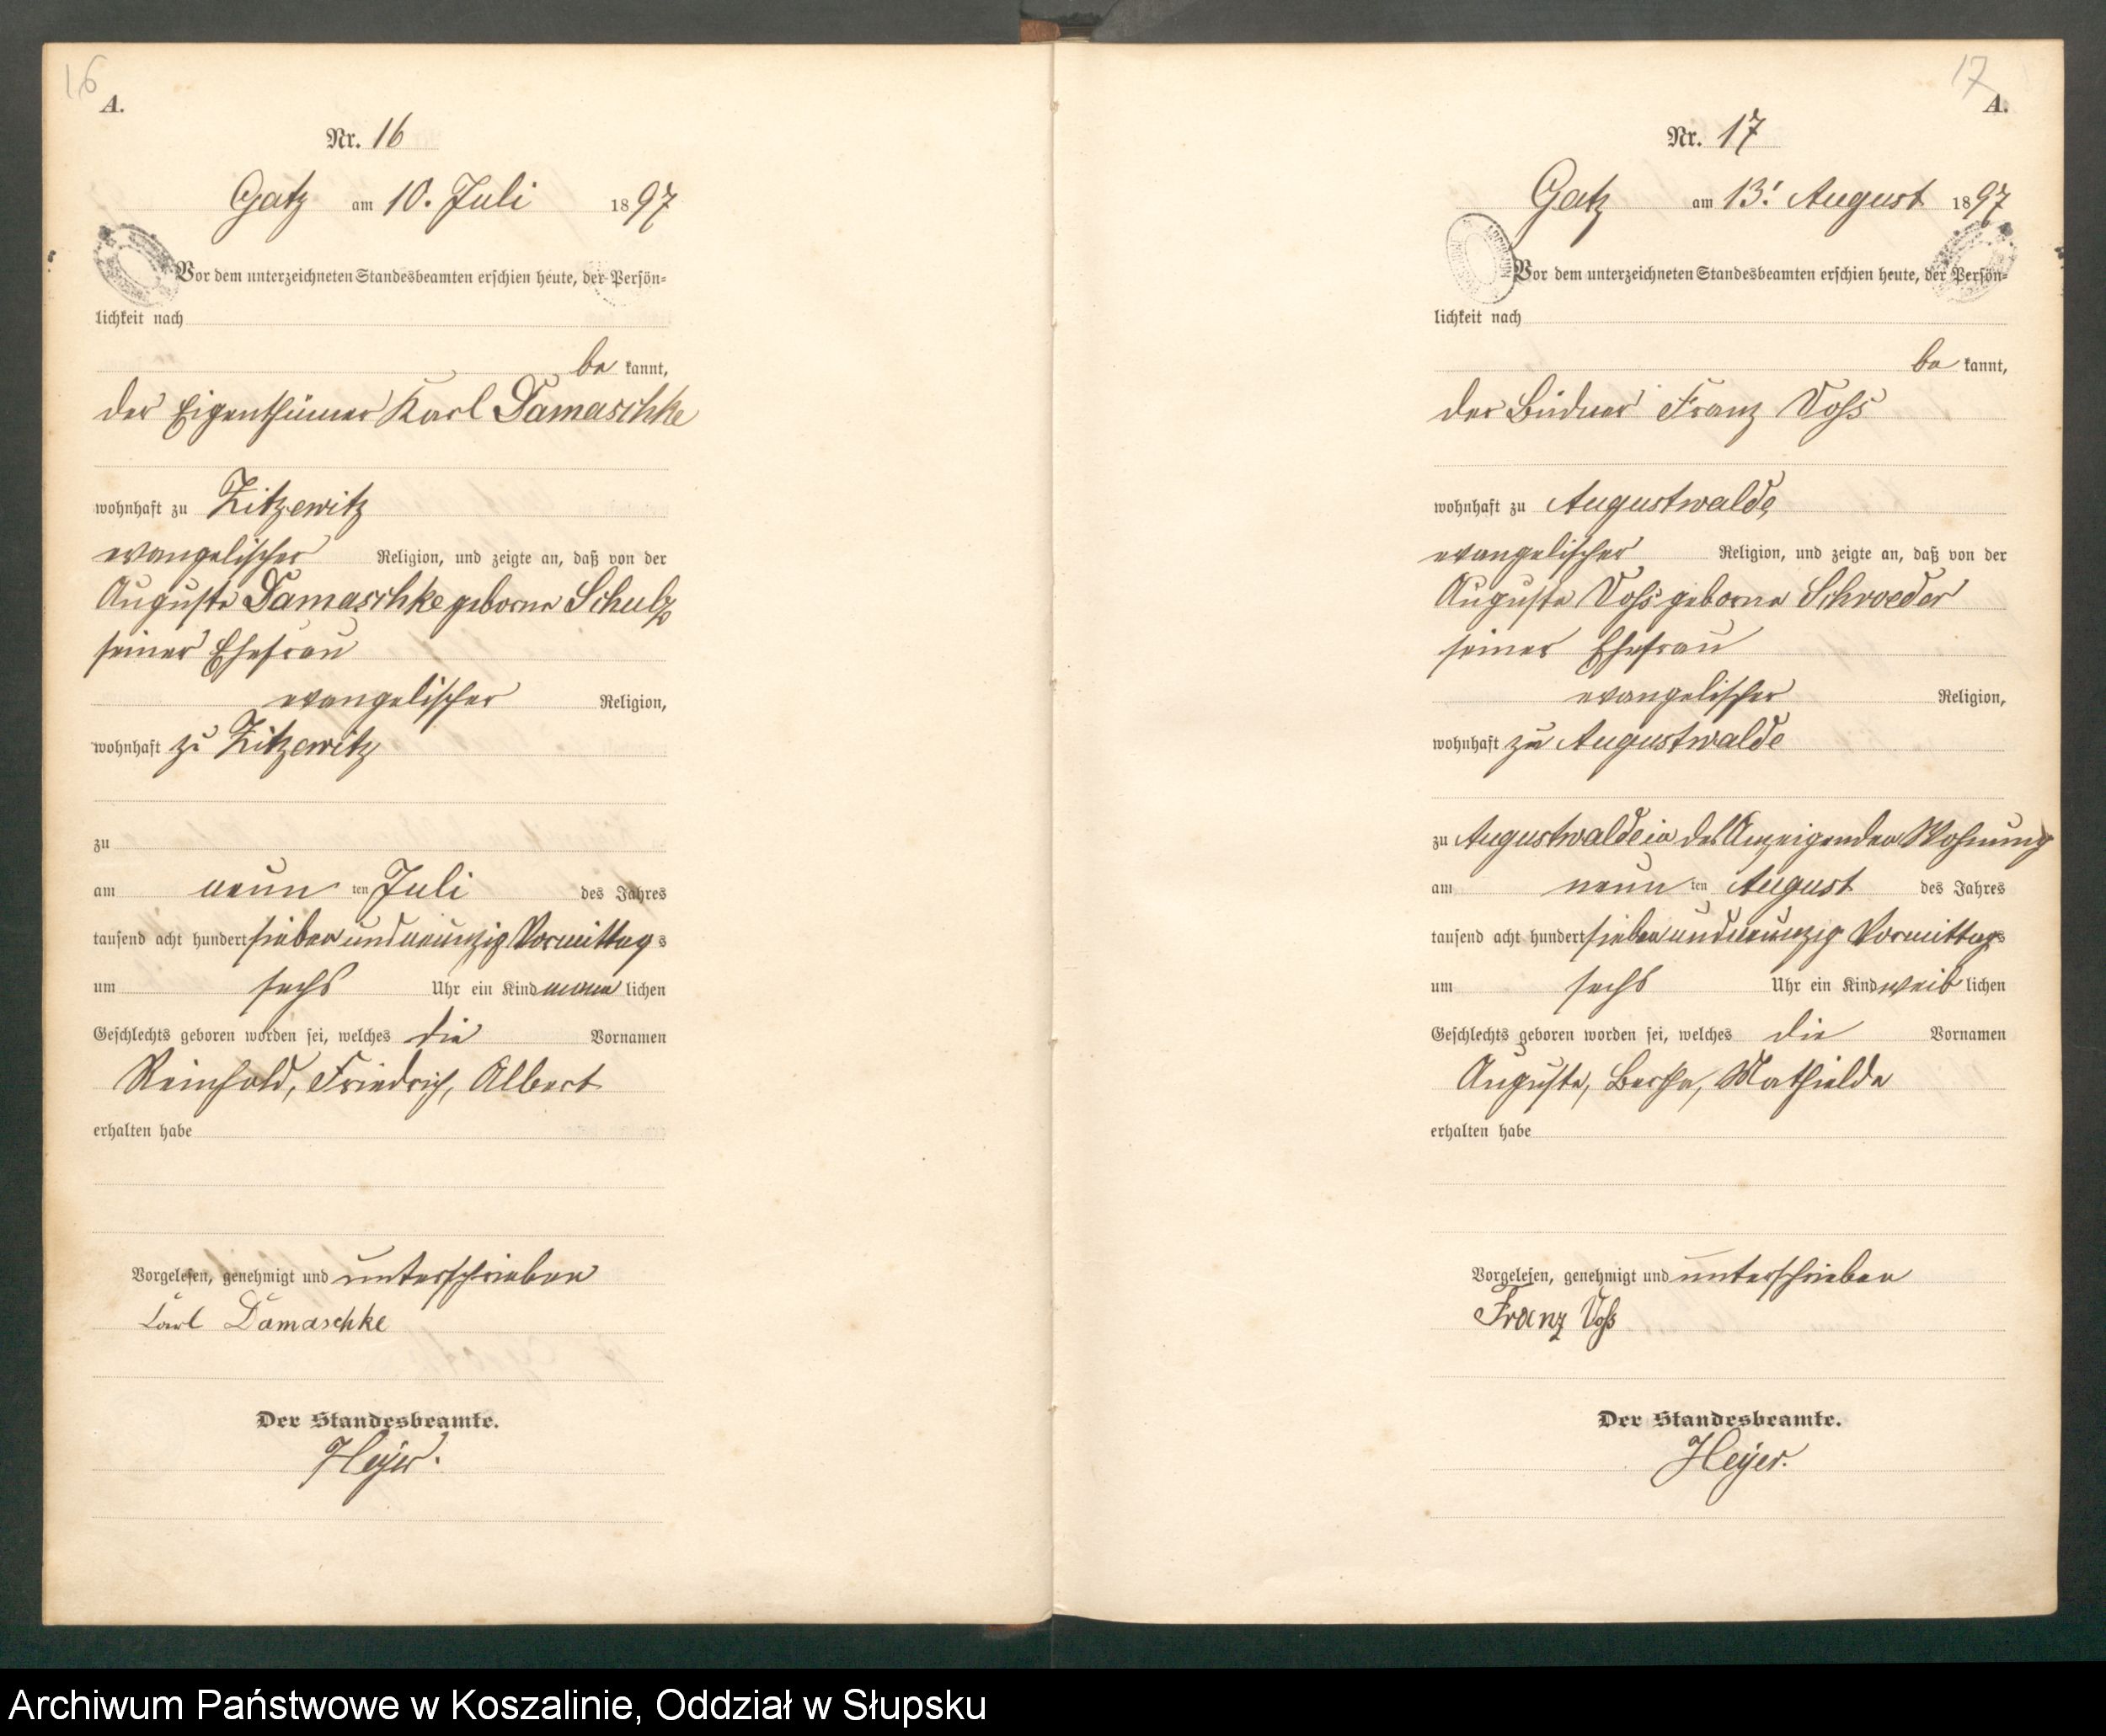 16
A.
Nr. 16
Gatz am 10. Juli 1897
Vor dem unterzeichneten Standesbeamten erschien heute, der Persön-
lichkeit nach
be kannt,
der Eigenthümer Karl Damaschke
wohnhaft zu Zitzewitz
evangelischer Religion, und zeigte an, daß von der
Auguste Damaschke geborne Schulz
seiner Ehefrau
evangelischer Religion,
wohnhaft zu Zitzewitz
zu
am neun ten Juli des Jahres
tausend acht hundert sieben und neunzig Vormittags
um sechs Uhr ein Kind männlichen
Geschlechts geboren worden sei, welches die Vornamen
Reinhold, Friedrich, Albert
erhalten habe
Vorgelesen, genehmigt und unterschrieben
Karl Damaschke
Der Standesbeamte.
Heyer.
17
A.
Nr. 17
Gatz am 13. August 1897
Vor dem unterzeichneten Standesbeamten erschien heute, der Persön-
lichkeit nach
be kannt,
der Büdner Franz Voß
wohnhaft zu Augustwalde,
evangelischer Religion, und zeigte an, daß von der
Auguste Voß geborne Schroeder
seiner Ehefrau
evangelischer Religion,
wohnhaft zu Augustwalde
zu Augustwalde in des Anzeigenden Wohnung
am neun ten August des Jahres
tausend acht hundert sieben und neunzig Vormittags
um sechs Uhr ein Kind weiblichen
Geschlechts geboren worden sei, welches die Vornamen
Auguste, Bertha, Mathielde
erhalten habe
Vorgelesen, genehmigt und unterschrieben
Franz Voß
Der Standesbeamte.
Heyer.
Archiwum Państwowe w Koszalinie, Oddział w Słupsku